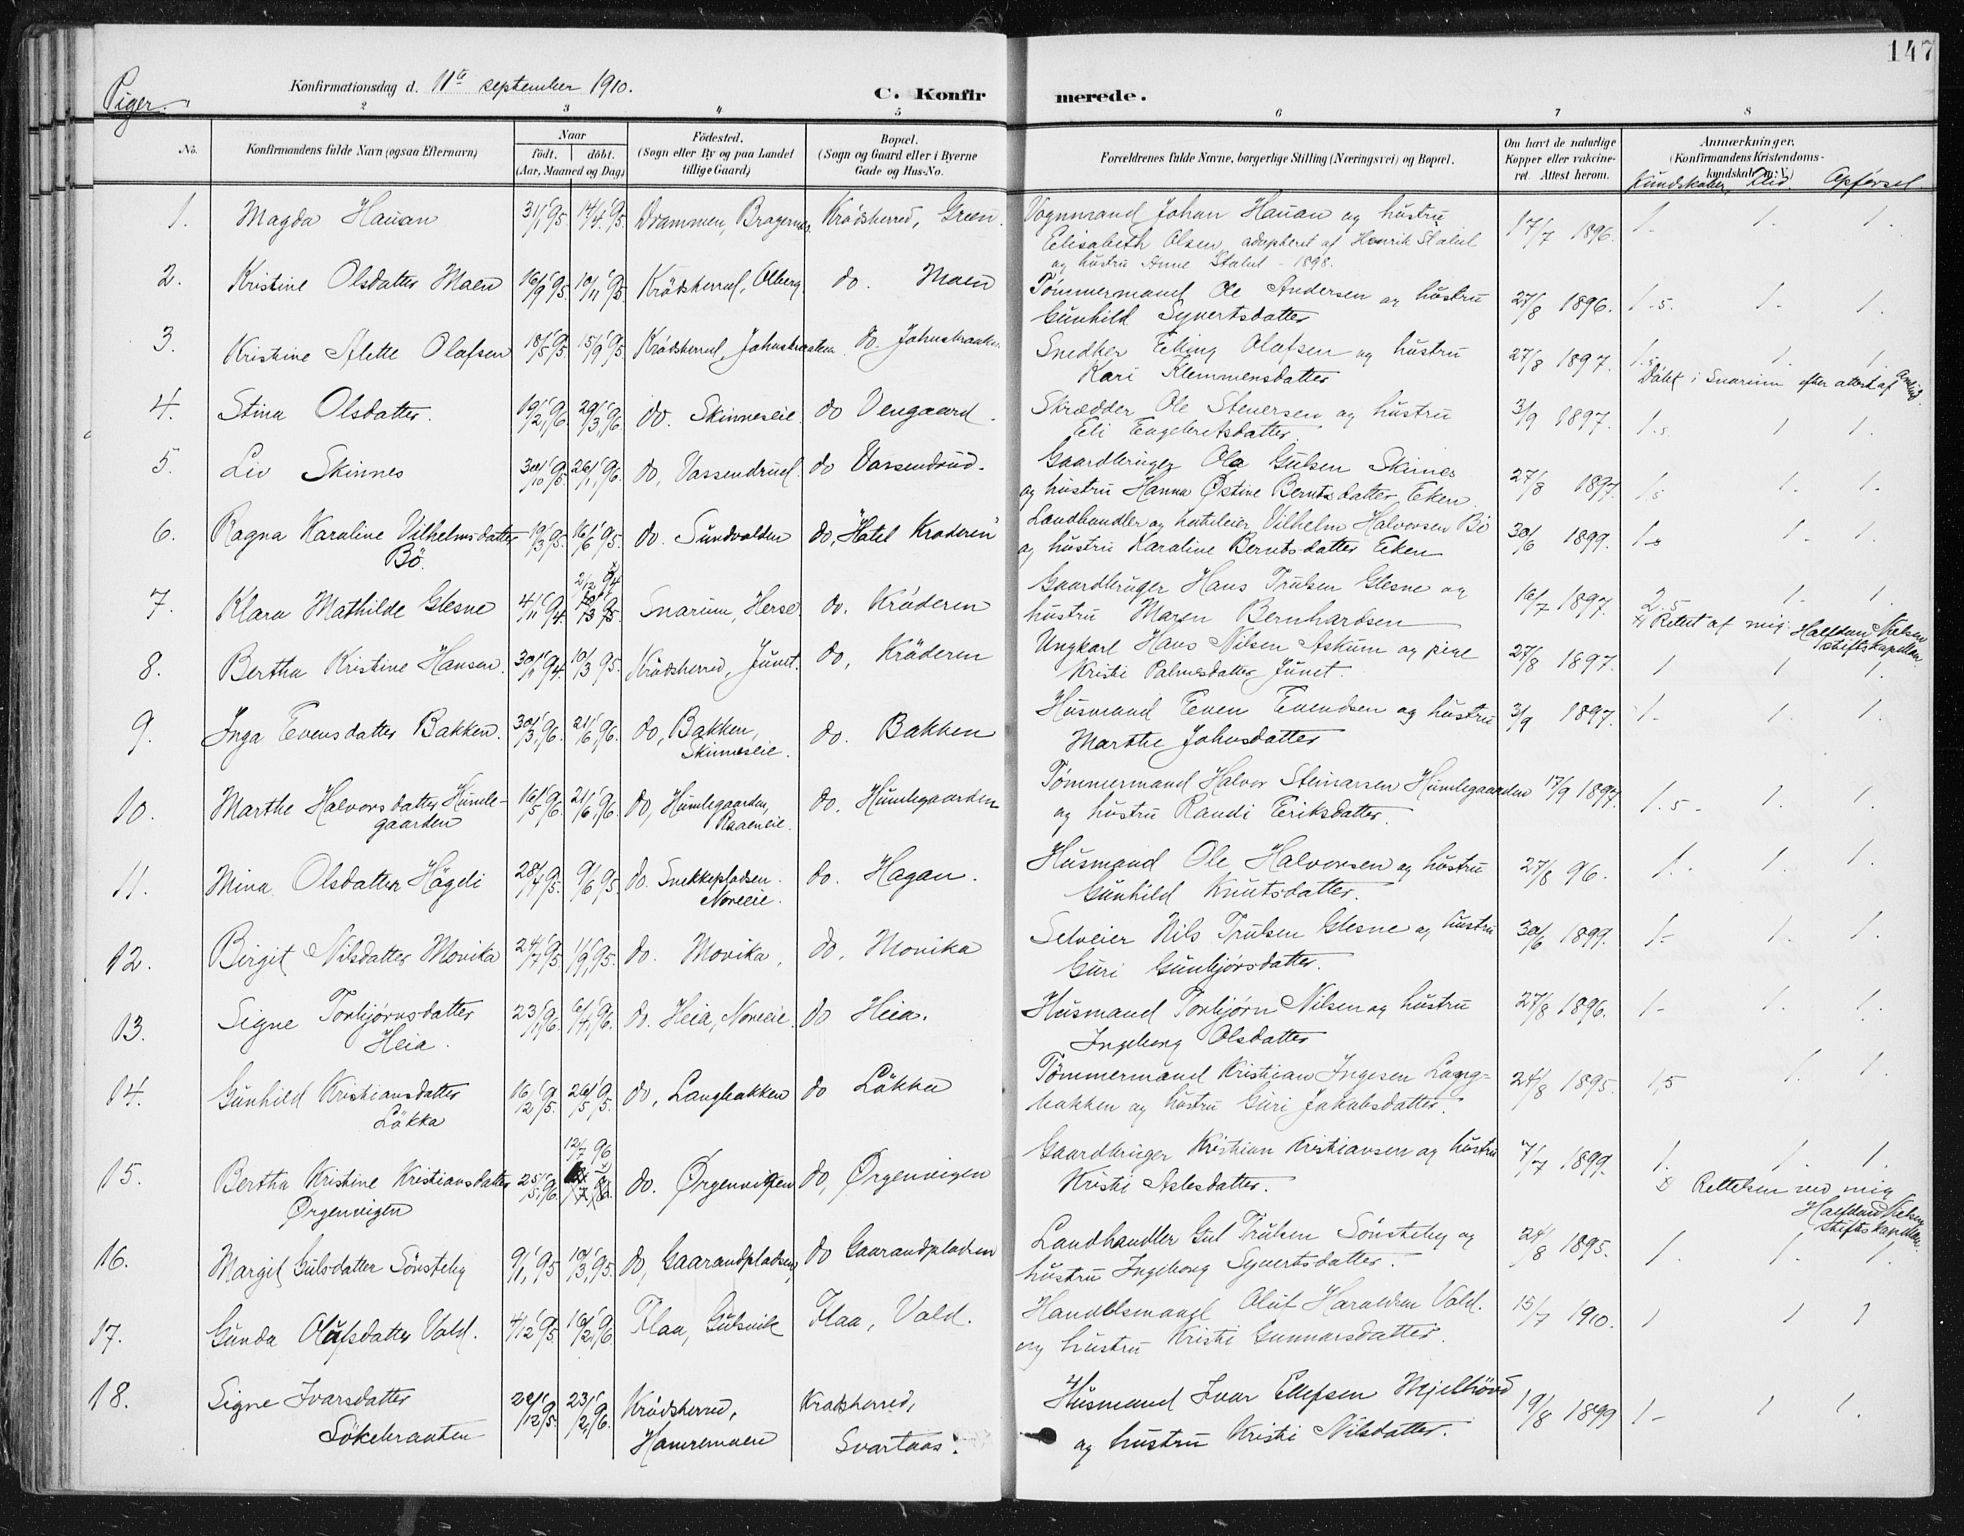 147
Piger.
Konfirmationsdag d. 11te september 1910.
C. Konfirmerede.
2 3 4 5 6 7 8
No.
Konfirmandens fulde Navn (ogsaa Efternavn)
Naar
født. døbt.
(Aar, Maaned og Dag)
Födested.
(Sogn eller By og paa Landet
tillige Gaard)
Bopæl.
(Sogn og Gaard eller i Byerne
Gade og Hus-No.
Forældrenes fulde Navne, borgerlige Stilling (Næringsvei) og Bopæl.
Om havt de naturlige
Kopper eller vakcine-
ret. Attest herom.
Anmærkninger.
(Konfirmandens Kristendoms-
kundskab m. V.)
Kundskaber Flid Opførsel
1. Magda Hauan 31/1 95 14/4 95 Drammen, Bragernes Krødsherred, Green. Vognmand Johan Hauan og hustru 17/7 1896. 1- 1. 1.
Elisabeth Olsen, adopteret af Henrik Stalsl
og hustru Anne - 1898.
2. Kristine Olsdatter Maen 16/9 95 10/11 95 Krödsherred, Olberg. do. Maen Tømmermand Ole Andersen og hustru 27/8 1896. 1-5. 1- 1.
Gunhild Syvertsdatter
3. Kristine Alette Olafsen 18/5 95 15/9 95 Krödsherred, Johnskraaten do. Johnskraaten Snedker Olafsen og hustru 27/8 1897. 1.5 1. 1.
Kari Klemmensdatter Döbt i Snarum efter attest af
4. Stina Olsdatter. 19/2 96 29/3 96 do. Skinneseie do Vengaard. Skrædder Ole Stenersen og hustru 3/9 1897. 1.5 1 1.
Eli Engebretsdatter.
5. Liv Skinnes 30/10 95 26/1 96 do, Vassendrud. do Vassendrud. Gaardbruger Ola Gulsen Skinnes 27/8 1897. 1.5 1. 1.
og hustru Hanna Østine Berntsdatter Eken.
6. Ragna Karoline Vilhelmsdatter 19/3 95. 16/6 95. do. Sundvolden do, "Hotel Krøderen" Landhandler og hoteleier Vilhelm Halvorsen Bö 30/6 1899. 1- 1. 1.
Bö. og hustru Karoline Berntsdatter Eken
2/12 94
7. Klara Mathilde Glesne 4/11 94 Snarum, Herse do. Kröderen Gaardbruger Hans Trulsen Glesne og 16/7 1897. 2.5 1. 1.
hustru Maren Bernhardsen Rettet af mig Halfdan Nielsen
stiftskapellan
8. Bertha Kristine Hansen. 94. 10/3 95. Krödsherred, Junet. do, Kröderen Ungkarl Hans Nilsen Askum og pige 27/8 1897. 1 1 1.
Kristi Palmesdatter Junet.
9. Inga Evensdatter Bakken. 30/3 96. 21/6 96. do, Bakken, do. Bakken Husmand Even Evendsen og hustru 3/9 1897. 1- 1. 1.
Skinneseie. Marthe Johnsdatter
10. Marthe Halvorsdatter Humle- 16/5 96. 21/6 96. do, Humlegaarden, do. Humlegaarden Tømmermand Halvor Steinarsen Humlegaarden 17/9 1897. 1.5- 1. 1.
gaarden Raaeneie. og hustru Randi Eriksdatter.
11. Mina Olsdatter Högeli 28/4 95. 9/6 95. do. Snekkepladsen. do. Hagan. Husmand Ole Halvorsen og hustru 27/8 96. 1.- 1. 1.
Noreeie. Gunhild Knutsdatter.
12. Birgit Nilsdatter Movika 24/7 95. 1/9 95. do. Movika, do, Movika Selveier Nils Trulsen Glesne og hustru 30/6 1899. 1- 1. 1.
Guri Gunbjørsdatter.
13. Signe Torbjørnsdatter 23/1 96. 6/4 96. do. Heia, Noreeie. do Heia. Husmand Torbjørn Nilsen og hustru 27/8 1896. 1- 1. 1.
Heia. Ingeborg Olsdatter
14. Gunhild Kristiansdatter 16/2 95. 26/5 95. do, Langbakken do Lökka Tømmermand Kristian Ingesen Lang- 24/8 1895. 1,5 1. 1.
Lökka bakken og hustru Guri Jakobsdatter.
12/7 96
15. Bertha Kristine Kristiansdatter 25/5 96. do. Ørgenvigen do, Ørgenvigen Gaardbruger Kristian Kristiansen og hustru 7/7 1899. 1. 1. 1.
Ørgenvigen Kristi Aslesdatter. Rettelsen ved mig
Halfdan Nielsen
stiftskapellan.
16. Margit Gulsdatter Sönsteby 9/1 95 10/3 95. do, Gaarandpladsen, do Gaarandpladsen Landhandler Gul Trulsen Sönsteby og 24/8 1895. 1. 1. 1.
hustru Ingeborg Syvertsdatter.
17. Gunda Olufsdatter Vald. 4/12 95 16/2 96 Flaa, Gulsvik Flaa, Vald. Handelsmand Oluf Haralsen Vald. 15/7 1910. 1 1 1
og hustru Kristi Gunnarsdatter.
18. Signe Ivarsdatter 22/12 95. 23/2 96. Krödsherred, Krodsherred, Husmand Ivar Ellefsen Mjelhövd 19/8 1899 1- 1 1.
Sökebraaten Hamremoen Svartaas. og hustru Kristi Nilsdatter.